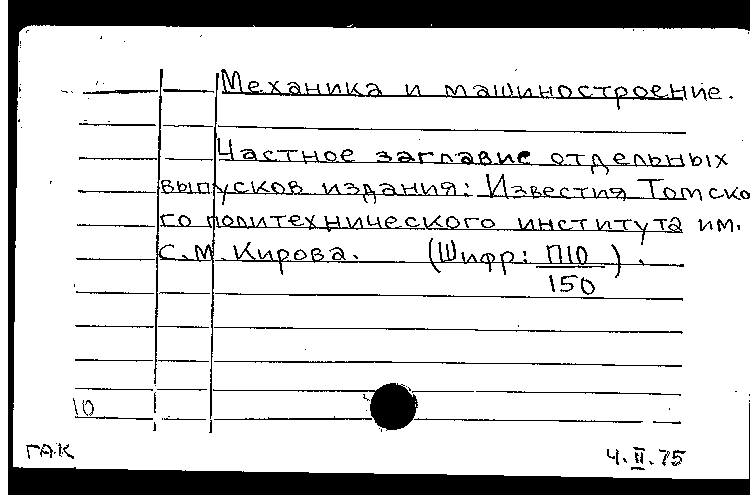 Механика и машиностроение.
Частное заглавие отдельных
выпусков издания: Известия Томско
го политехнического института им.
С.М. Кирова. (Шифр: П10/150).
10
ГАК
4.II.75